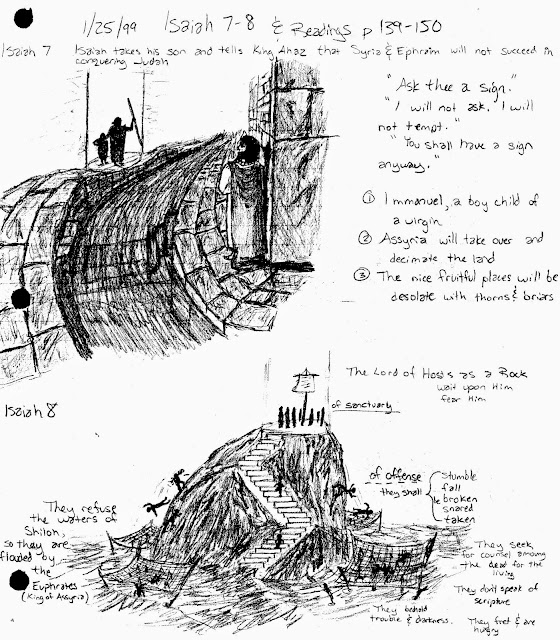 1/25/99 Isaiah 7-8 & Readings p 139-150
Isaiah 7 Isaiah takes his son and tells King Ahaz that Syria & Ephraim will not succeed in
conquering Judah
"Ask thee a sign."
"I will not ask. I will
not tempt."
"You shall have a sign
anyway."
① Immanuel, a boy child of
a virgin
② Assyria will take over and
decimate the land
③ The nice fruitful places will be
desolate with thorns & briars
Isaiah 8
The Lord of Hosts as a Rock
wait upon Him
fear Him
of sanctuary
of offense
they shall
stumble
fall
be broken
snared
taken
They refuse
the waters of
Shiloh,
so they are
flooded by
the
Euphrates
(King of Assyria)
They seek
for counsel among
the dead for the
living
They don't speak of
scripture
They behold
trouble & darkness.
They fret & are
hungry